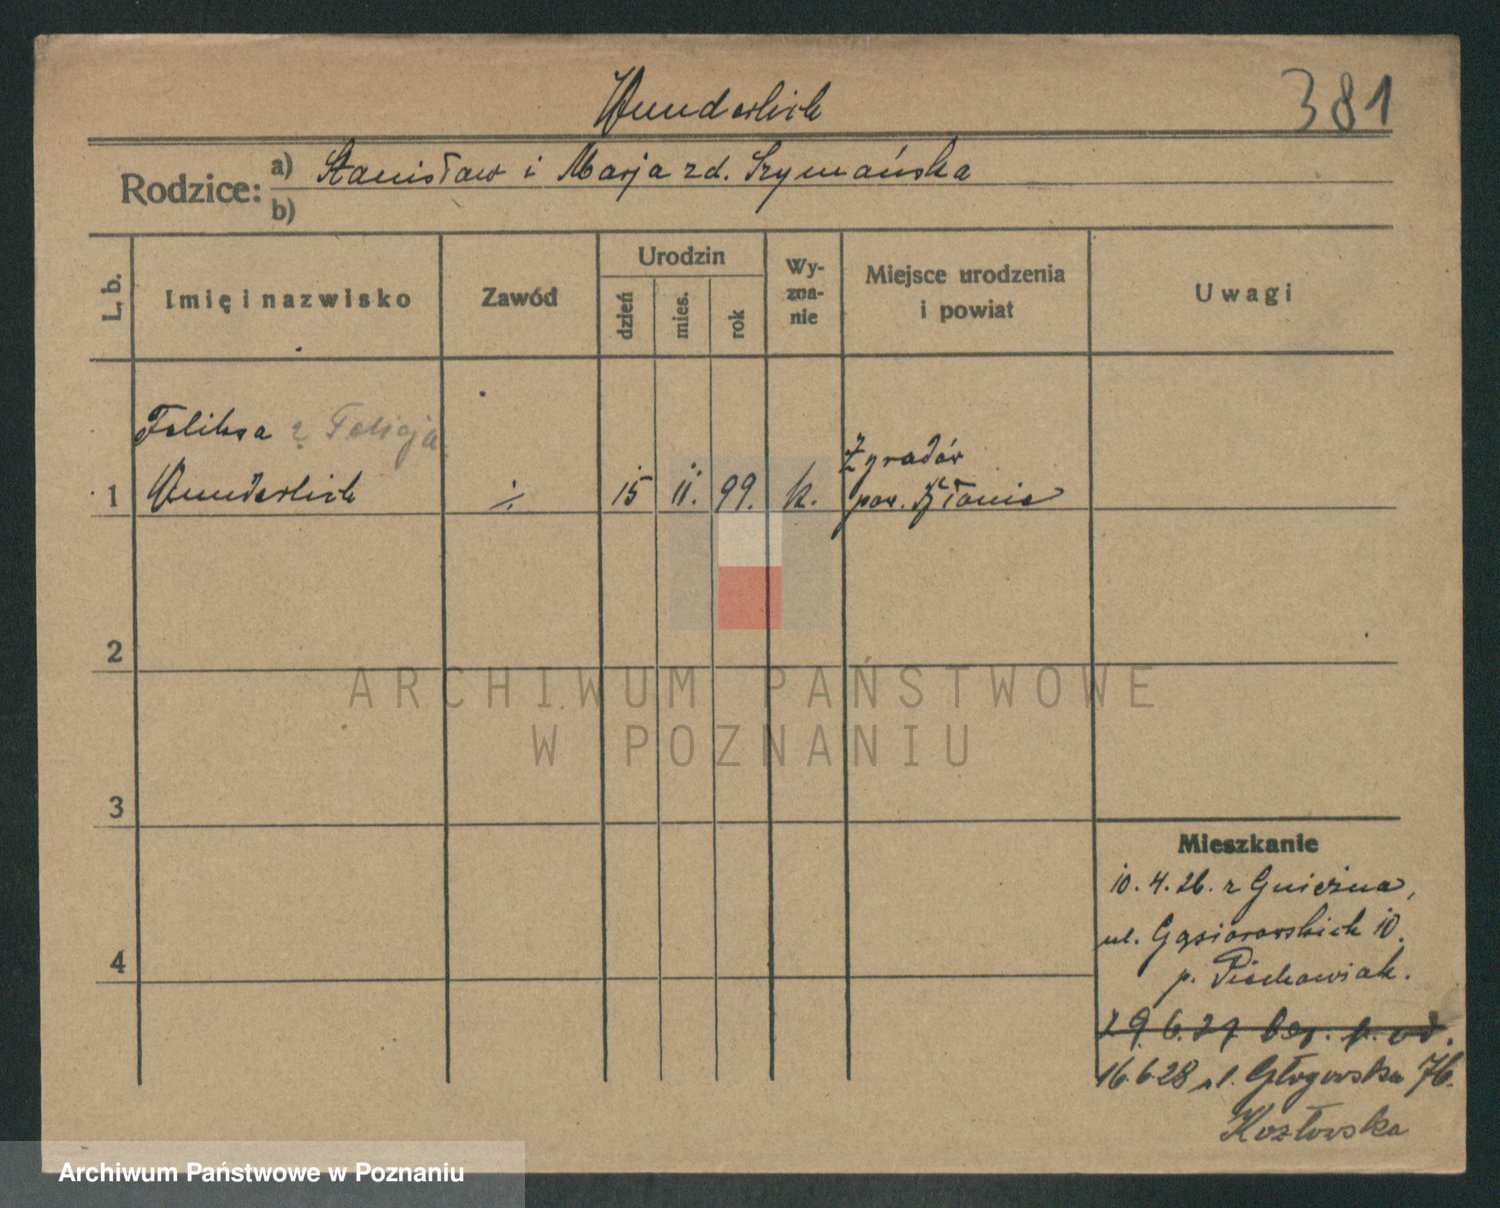 Wunderlich
381
Rodzice: a) Stanisław i Marja zd. Szymańska
b)
L. b.
Imię i nazwisko
Zawód
Urodzin
dzień
mies.
rok
Wy-
zna-
nie
Miejsce urodzenia
i powiat
Uwagi
Feliksa ? Felicja
1 Wunderlich ./. 15 11. 99. k.
Żyradów
pow. Błonie
2
3
4
Mieszkanie
10.4.26. z Gniezna,
ul. Gąsiorowskich 10.
p. Piechowiak.
29.6.27
16.6.28 ul. Głogowska 76.
Kozłowska
ARCHIWUM PAŃSTWOWE
W POZNANIU
Archiwum Państwowe w Poznaniu